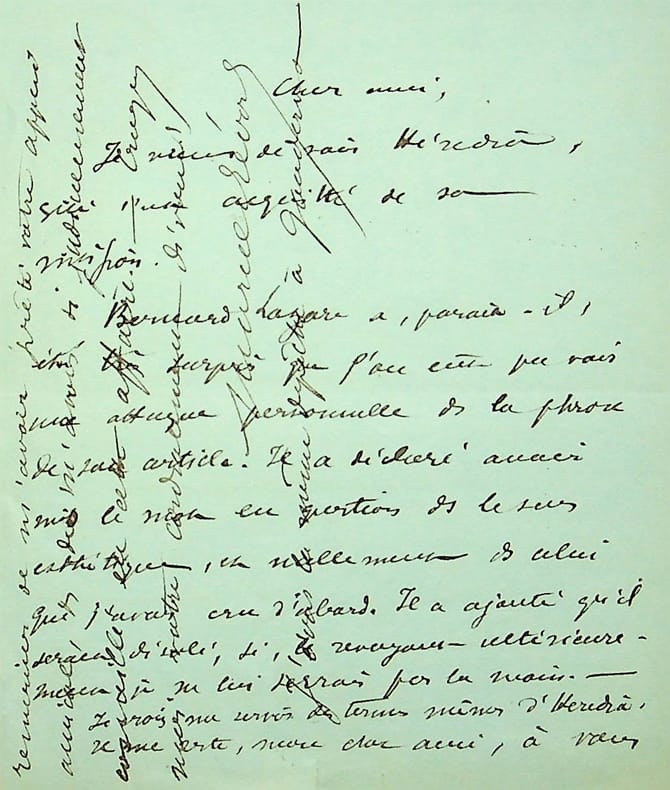 Cher ami,
Je viens de voir Hérédia,
qui s'est acquitté de sa
mission.
Bernard Lazare a, paraît-il,
été très surpris que l'on eût pu voir
une attaque personnelle de la phrase
de son article. Il a déclaré avoir
mis le mot en question dans le sens
esthétique, et nullement de celui
que j'avais cru d'abord. Il a ajouté qu'il
serait désolé, si, le revoyant ultérieure-
ment je ne lui serrais pas la main. —
Je crois me servir des termes mêmes d'Hérédia.
Il me reste, mon cher ami, à vous
remercier de m'avoir prêté votre appui
amical & de m'avoir si judicieusement
conseillé en cette affaire. Croyez
moi votre cordialement dévoué